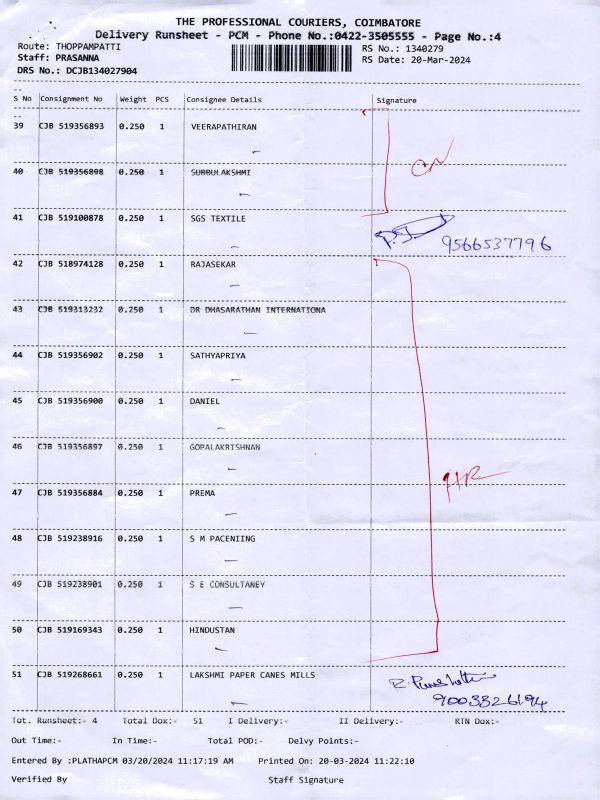 THE PROFESSIONAL COURIERS, COIMBATORE
Delivery Runsheet - PCM - Phone No.:0422-3505555 - Page No.:4
Route: THOPPAMPATTI RS No.: 1340279
Staff: PRASANNA RS Date: 20-Mar-2024
DRS No.: DCJB134027904
S No Consignment No Weight PCS Consignee Details Signature
39 CJB 519356893 0.250 1 VEERAPATHIRAN
40 CJB 519356898 0.250 1 SUBBULAKSHMI
41 CJB 519100878 0.250 1 SGS TEXTILE 9566537796
42 CJB 518974128 0.250 1 RAJASEKAR
43 CJB 519313232 0.250 1 DR DHASARATHAN INTERNATIONA
44 CJB 519356902 0.250 1 SATHYAPRIYA
45 CJB 519356900 0.250 1 DANIEL
46 CJB 519356897 0.250 1 GOPALAKRISHNAN
47 CJB 519356884 0.250 1 PREMA
48 CJB 519238916 0.250 1 S M PACENIING
49 CJB 519238901 0.250 1 S E CONSULTANEY
50 CJB 519169343 0.250 1 HINDUSTAN
51 CJB 519268661 0.250 1 LAKSHMI PAPER CANES MILLS
9003326194
Tot. Runsheet:- 4 Total Dox:- 51 I Delivery:- II Delivery:- RTN Dox:-
Out Time:- In Time:- Total POD:- Delvy Points:-
Entered By :PLATHAPCM 03/20/2024 11:17:19 AM Printed On: 20-03-2024 11:22:10
Verified By Staff Signature